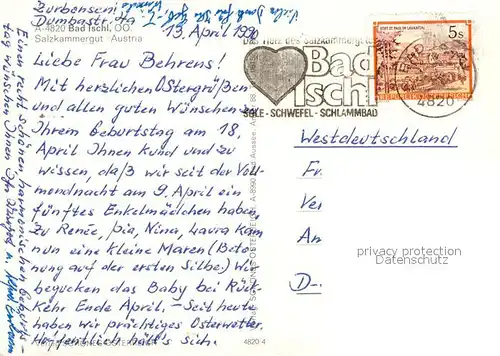 Zurbonseni
Dumbastr. 4a
A-4820 Bad Ischl, OÖ.
Salzkammergut · Austria
13. April 1990
Liebe Frau Behrens!
Mit herzlichen Ostergrüßen
und allen guten Wünschen zu
Ihrem Geburtstag am 18.
April Ihnen kund und zu
wissen, daß wir seit der Voll-
mondnacht am 9. April ein
fünftes Enkelmädchen haben,
zu Renée, Pia, Nina, Laura kam
nun eine kleine Maren (Beto-
nung auf der ersten Silbe.) Wir
begucken das Baby bei Rück-
kehr Ende April. – Seit heute
haben wir prächtiges Osterwetter.
Hoffentlich hält's sich.
Einen recht schönen harmonischen Geburts-
tag wünschen Ihnen Ihre
Vielen Dank für
Das Herz des Salzkammerguts
Bad
Ischl
SOLE - SCHWEFEL - SCHLAMMBAD
STIFT ST. PAUL IM LAVANTTAL
5s
REPUBLIK ÖSTERREICH
4820
Westdeutschland
Fr.
Ve
An
D-
privacy protection
Datenschutz
4820 4